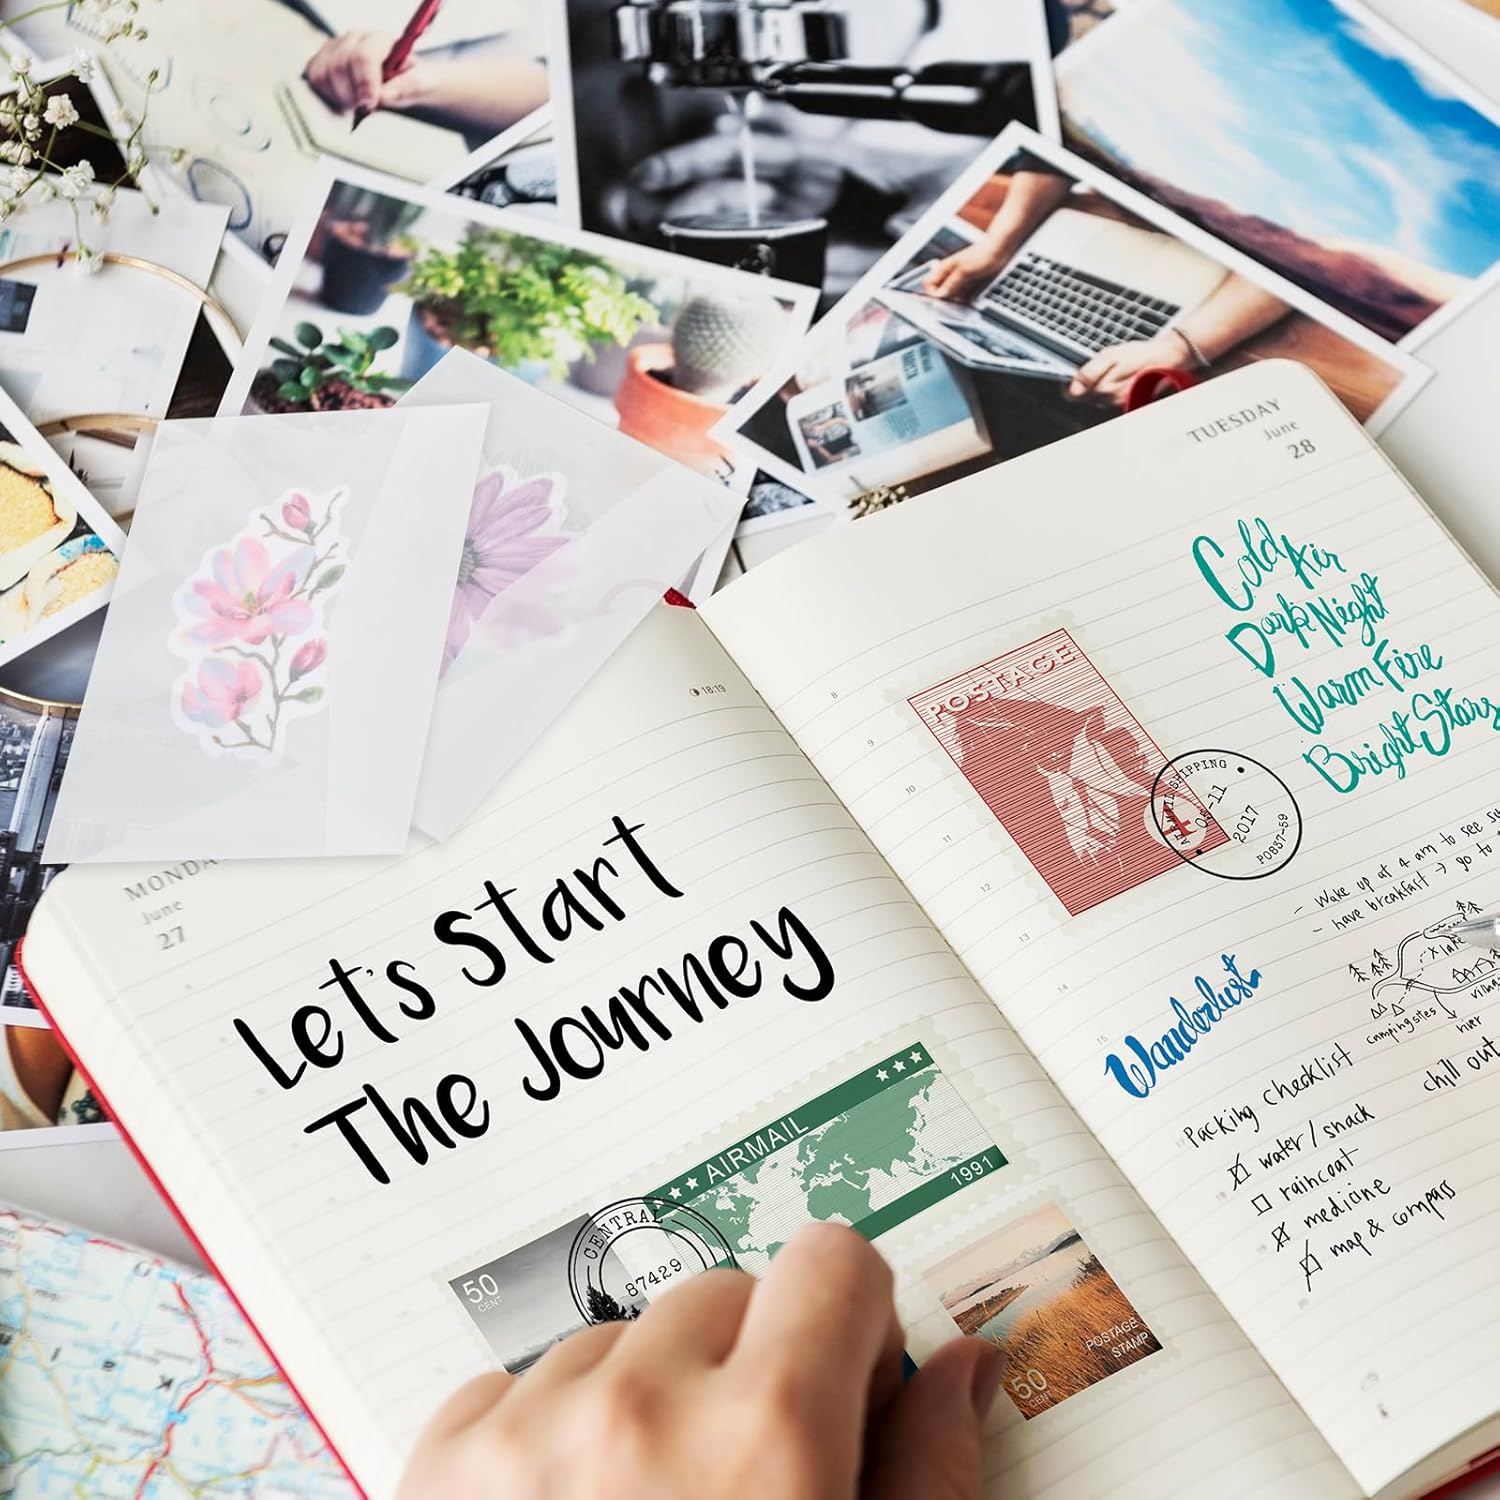 TUESDAY
June
28
MONDAY
June
27
18:19
Let's Start
The Journey
AIRMAIL
1991
CENTRAL
87429
50
CENT
POSTAGE
STAMP
50
CENT
8
9
10
11
12
13
14
15
POSTAGE
4
AIRMAIL SHIPPING
2017
PO857-59
Cold Air
Dark Night
Warm Fire
Bright Stars
- Wake up at 4 am to see su
- have breakfast → go to
x lake
camping sites
river
chill out
Wanderlust
Packing checklist
water / snack
raincoat
medicine
map & compass